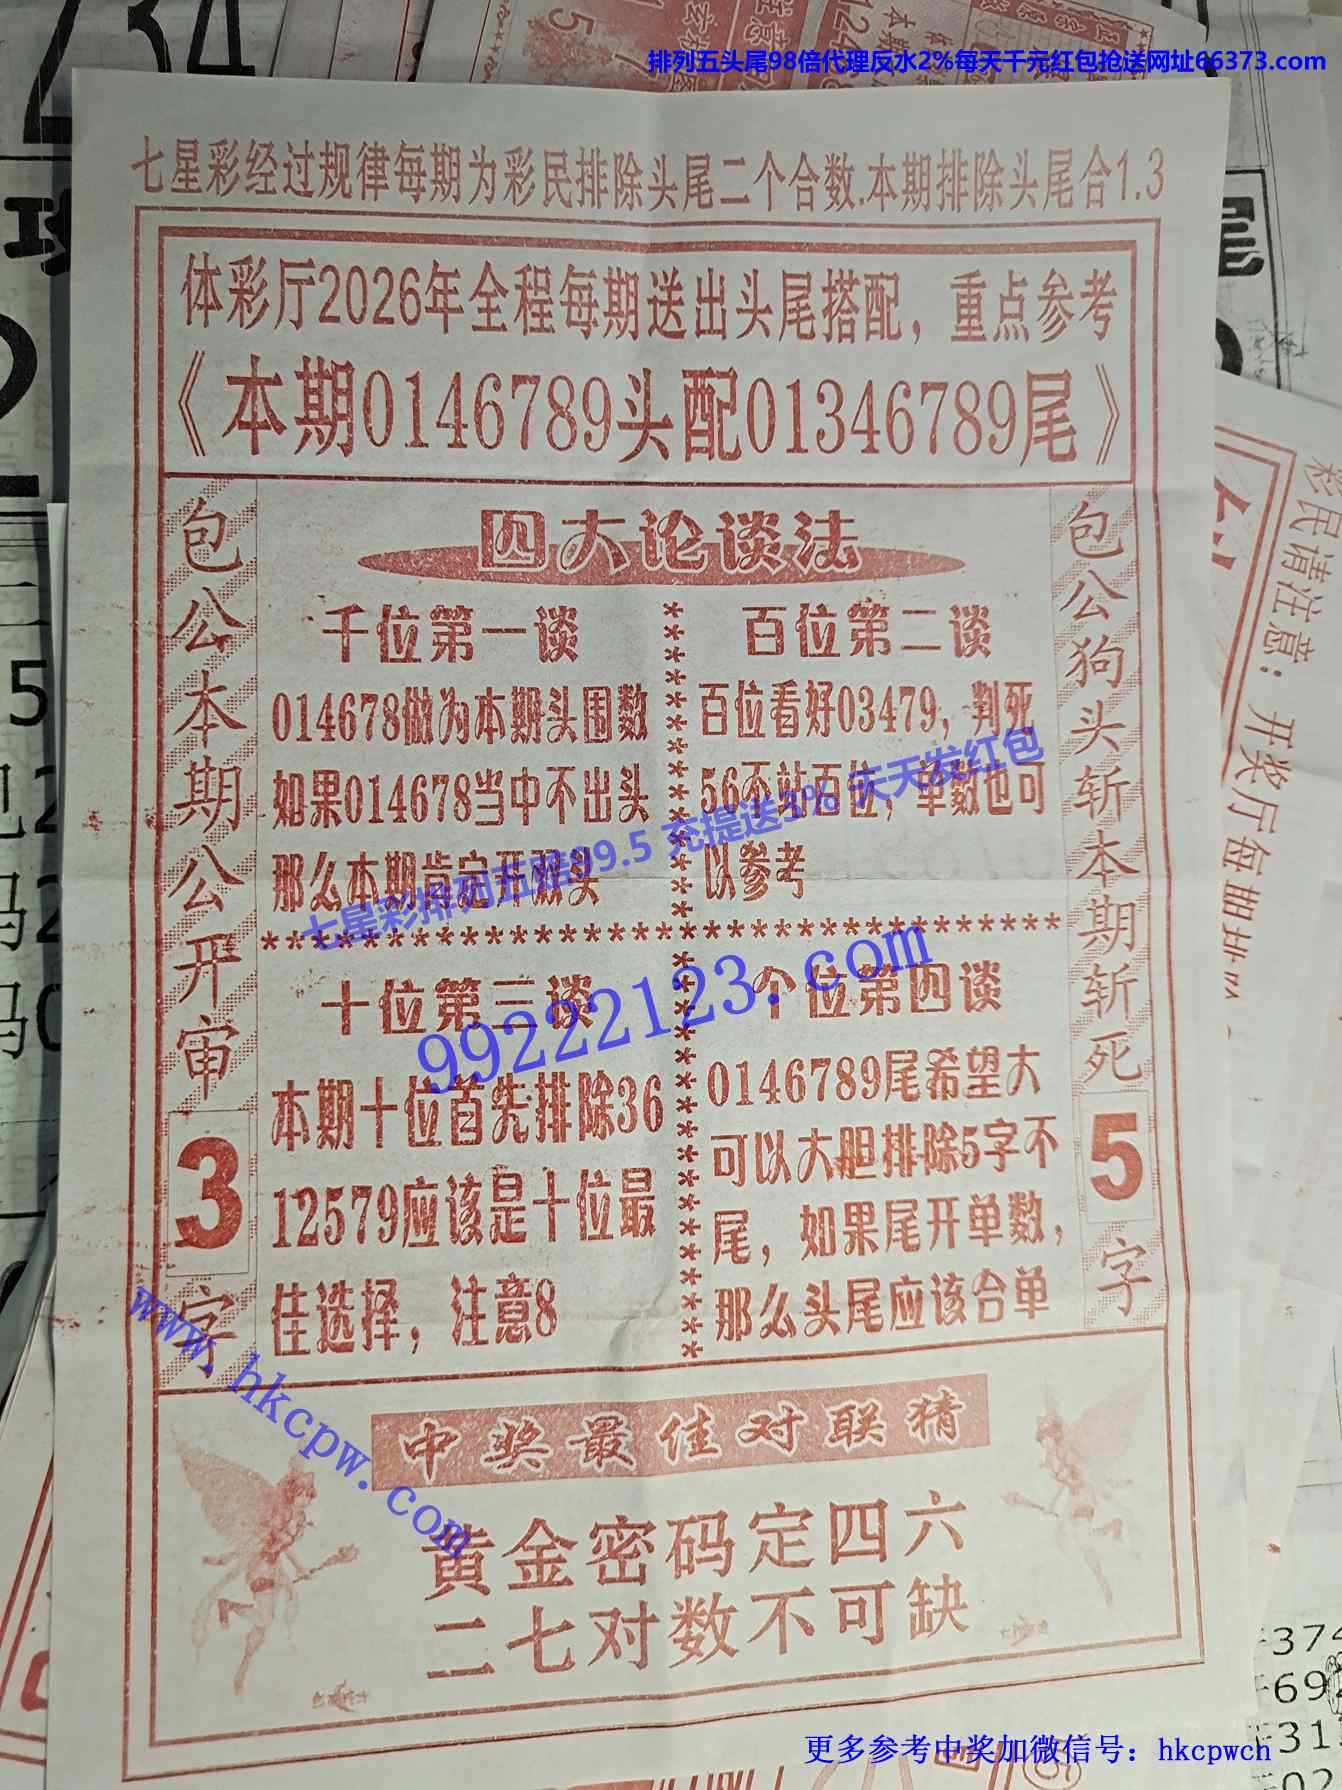 排列五头尾98倍代理反水2%每天千元红包抢送网址66373.com
七星彩经过规律每期为彩民排除头尾二个合数.本期排除头尾合1.3
体彩厅2026年全程每期送出头尾搭配，重点参考
《本期0146789头配01346789尾》
包公本期公开审3字
四大论谈法
千位第一谈
014678做为本期头围数
如果014678当中不出头
那么本期肯定开双头
百位第二谈
百位看好03479，判死
56不站百位，单数也可
以参考
七星彩排列五赔99.5 充提送1% 天天发红包
99222123.com
十位第三谈
本期十位首先排除36
12579应该是十位最
佳选择，注意8
个位第四谈
0146789尾希望大
可以大胆排除5字不
尾，如果尾开单数，
那么头尾应该合单
包公狗头斩本期斩死5字
www.hkcpw.com
中奖最佳对联猜
黄金密码定四六
二七对数不可缺
彩民请注意：开奖厅每期
更多参考中奖加微信号：hkcpwch